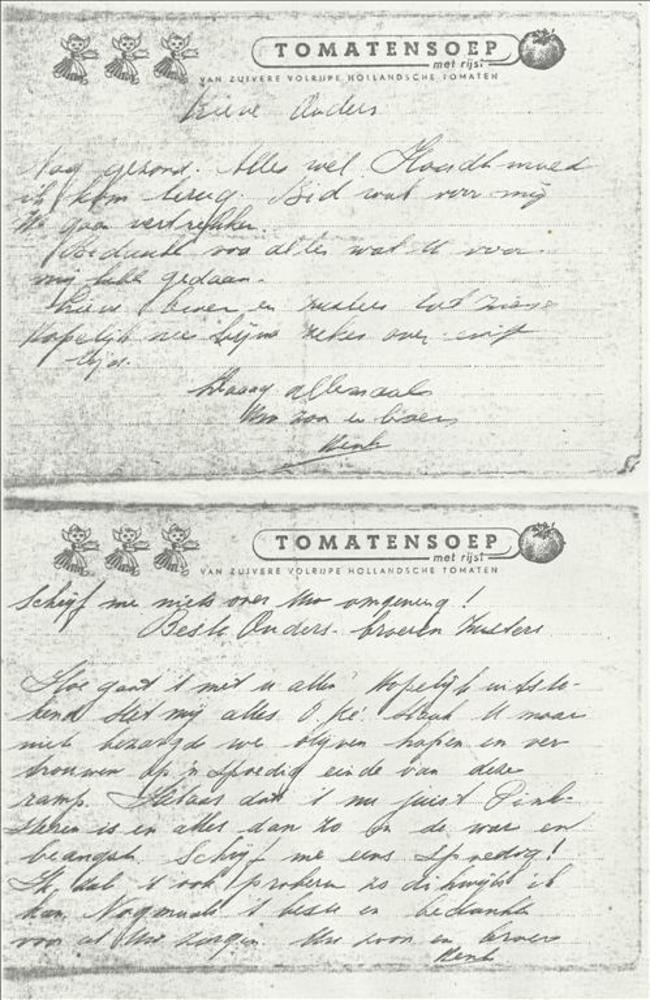 TOMATENSOEP
met rijst
VAN ZUIVERE VOLRIJPE HOLLANDSCHE TOMATEN
Lieve Ouders
Nog gezond. Alles wel. Houdt moed
ik kom terug. Bid wat voor mij
We gaan vertrekken.
Bedankt voor alles wat U voor
mij hebt gedaan.
Lieve broer en zusters tot ziens
Hopelijk nee bijna zeker over
tijd.
Daaag allemaal
Uw zoon en broer
Henk
TOMATENSOEP
met rijst
VAN ZUIVERE VOLRIJPE HOLLANDSCHE TOMATEN
Schrijf me niets over Uw omgeving!
Beste Ouders. broer en Zusters
Hoe gaat 't met u allen? Hopelijk uitste-
kend. Met mij alles O.ké. Maak U maar
niet bezorgd we blijven hopen en ver
trouwen op 'n spoedig einde van deze
ramp. Helaas dat 't nu juist Pink-
steren is en alles dan zo in de war en
beangst. Schrijf me eens spoedig!
Ik zal 't ook proberen zo dikwijls ik
kan. Nogmaals 't beste en bedankt
voor al Uw zorgen. Uw zoon en broer
Henk